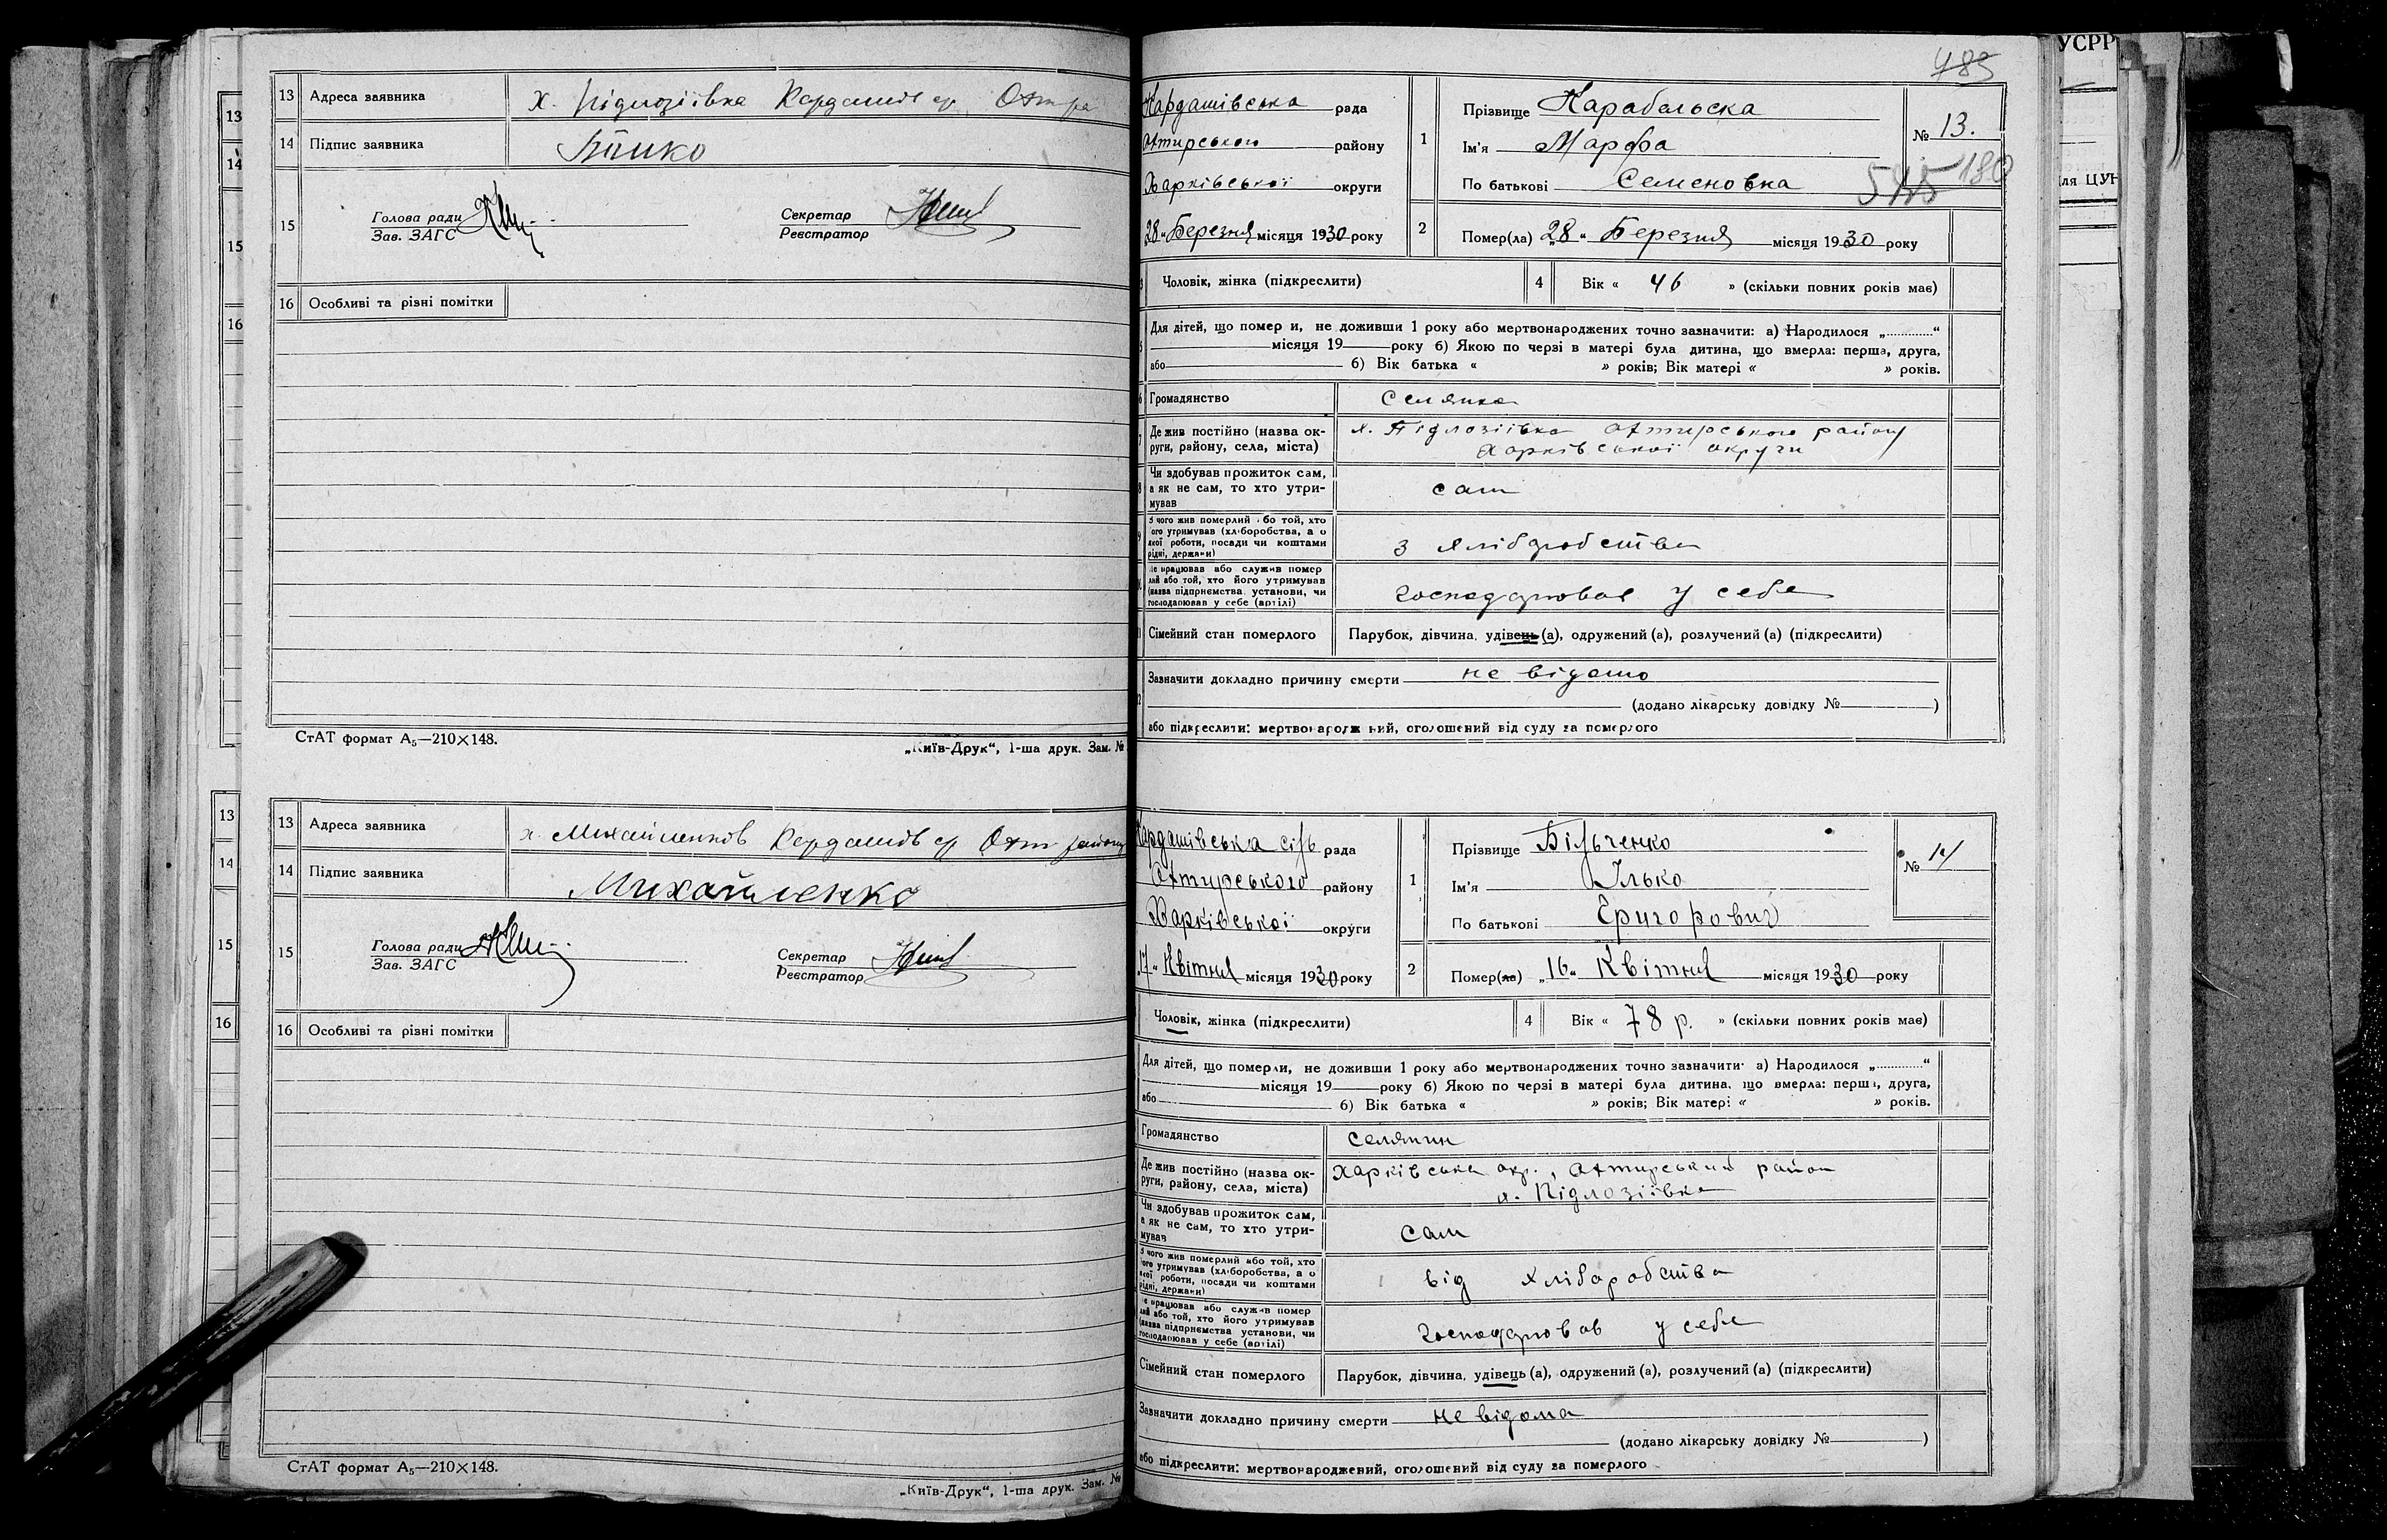 13 Адреса заявника х. Підлозіївка Кардашів ср Охт ра
14 Підпис заявника
15 Голова ради Секретар
Зав. ЗАГС Реєстратор
16 Особливі та різні помітки
СтАТ формат А₅—210×148.
„Київ-Друк“, 1-ша друк. Зам. №
13 Адреса заявника х. Михайленків Кардашів ср Охт району
14 Підпис заявника Михайленко
15 Голова ради Секретар
Зав. ЗАГС Реєстратор
16 Особливі та різні помітки
СтАТ формат А₅—210×148.
„Київ-Друк“, 1-ша друк. Зам. №
485
Кардашівська рада
Охтирського району
Харківської округи
28 „ Березня місяця 1930 року
1 Прізвище Карабальска
Ім'я Марфа
По батькові Семеновна
№ 13.
180
2 Помер(ла) „28 “ Березня місяця 1930 року
Чоловік, жінка (підкреслити) 4 Вік « 46 » (скільки повних років має)
Для дітей, що помер и, не доживши 1 року або мертвонароджених точно зазначити: а) Народилося „............“
місяця 19 року б) Якою по черзі в матері була дитина, що вмерла: перша, друга,
або б) Вік батька « » років; Вік матері « » років.
Громадянство Селянка
Де жив постійно (назва ок-
руги, району, села, міста) х. Підлозіївка Охтирського району
Харківської округи
Чи здобував прожиток сам,
а як не сам, то хто утри-
мував сам
З чого жив померлий або той, хто
його утримував (хліборобства, а о
якої роботи, посади чи коштами
рідні, держави) з хліборобства
Де працював або служив помер
лий або той, хто його утримував
(назва підприємства, установи, чи
господарював у себе (артілі) господарював у себе
Сімейний стан померлого Парубок, дівчина, удівець (а), одружений (а), розлучений (а) (підкреслити)
Зазначити докладно причину смерти не відомо
(додано лікарську довідку № )
або підкреслити: мертвонароджений, оголошений від суду за померлого
Кардашівська сіль рада
Охтирського району
Харківської округи
„17 “ Квітня місяця 1930 року
1 Прізвище Більченко
Ім'я Ілько
По батькові Григорович
№ 14
2 Помер(ла) „16 “ Квітня місяця 1930 року
Чоловік, жінка (підкреслити) 4 Вік « 78 р. » (скільки повних років має)
Для дітей, що померли, не доживши 1 року або мертвонароджених точно зазначити: а) Народилося „............“
місяця 19 року б) Якою по черзі в матері була дитина, що вмерла: перша, друга,
або б) Вік батька « » років; Вік матері « » років.
Громадянство селянин
Де жив постійно (назва ок-
руги, району, села, міста) Харківська окр., Охтирський район
х. Підлозіївка
Чи здобував прожиток сам,
а як не сам, то хто утри-
мував сам
З чого жив померлий або той, хто
його утримував (хліборобства, а о
якої роботи, посади чи коштами
рідні, держави) від хліборобства
Де працював або служив помер
лий або той, хто його утримував
(назва підприємства установи, чи
господарював у себе (артілі) господарював у себе
Сімейний стан померлого Парубок, дівчина, удівець (а), одружений (а), розлучений (а) (підкреслити)
Зазначити докладно причину смерти не відома
(додано лікарську довідку № )
або підкреслити: мертвонароджений, оголошений від суду за померлого
13
14
15
16
13
14
15
16
УСРР
ля ЦУН